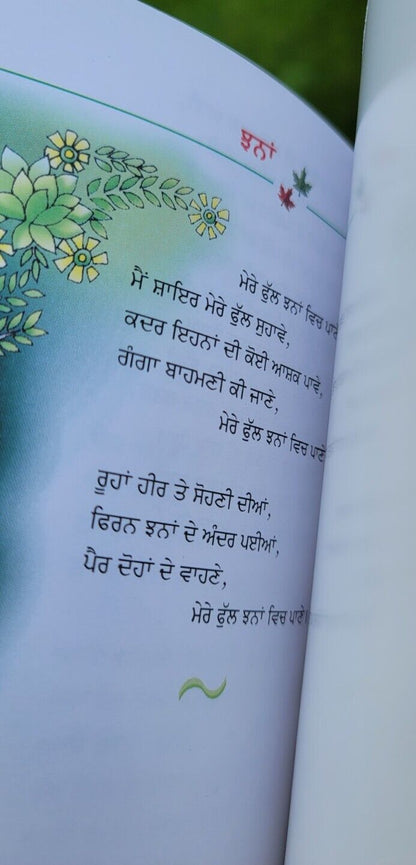 ਝਨਾਂ
ਮੇਰੇ ਫੁੱਲ ਝਨਾਂ ਵਿਚ ਪਾਣੇ
ਮੈਂ ਸ਼ਾਇਰ ਮੇਰੇ ਫੁੱਲ ਸੁਹਾਵੇ,
ਕਦਰ ਇਹਨਾਂ ਦੀ ਕੋਈ ਆਸ਼ਕ ਪਾਵੇ,
ਗੰਗਾ ਬਾਹਮਣੀ ਕੀ ਜਾਣੇ,
ਮੇਰੇ ਫੁੱਲ ਝਨਾਂ ਵਿਚ ਪਾਣੇ
ਰੂਹਾਂ ਹੀਰ ਤੇ ਸੋਹਣੀ ਦੀਆਂ,
ਫਿਰਨ ਝਨਾਂ ਦੇ ਅੰਦਰ ਪਈਆਂ,
ਪੈਰ ਦੋਹਾਂ ਦੇ ਵਾਹਣੇ,
ਮੇਰੇ ਫੁੱਲ ਝਨਾਂ ਵਿਚ ਪਾਣੇ।